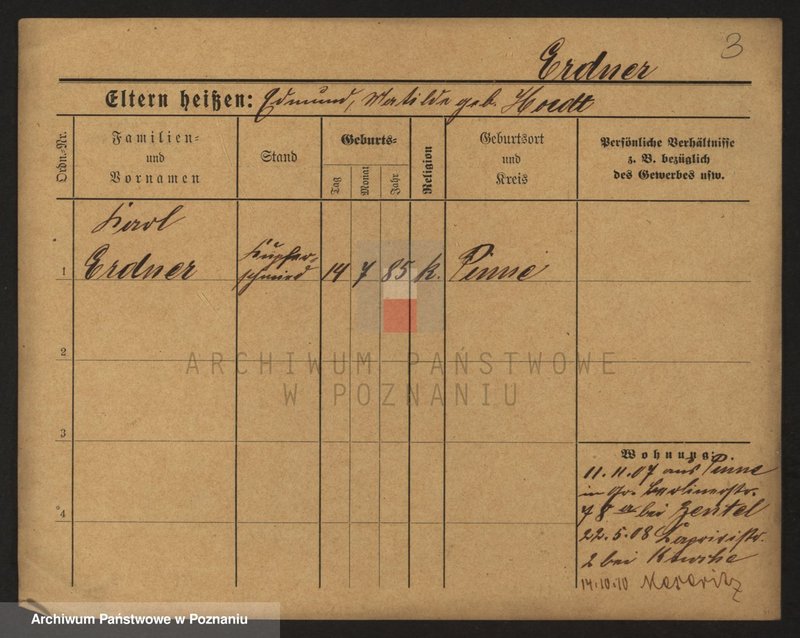 3
Erdner
Eltern heißen: Edmund, Matilde geb. Hoedt
Ordn.-Nr.
Familien-
und
Vornamen
Stand
Geburts-
Tag
Monat
Jahr
Religion
Geburtsort
und
Kreis
Persönliche Verhältnisse
z. B. bezüglich
des Gewerbes usw.
Karl
1 Erdner
Kupfer-
schmied
14 7 85 k. Pinne
2
3
4
ARCHIWUM PAŃSTWOWE
W POZNANIU
Wohnung:
11.11.07 aus Pinne
in Gr. Berlinerstr.
78 bei Zentel
22.5.08 Caprivistr.
2 bei
14.10.10
Archiwum Państwowe w Poznaniu